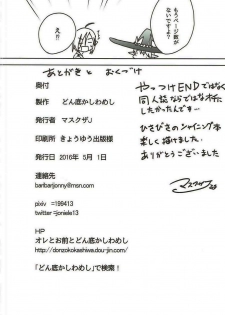 もうページ数が
ないですよ?
え!?
あとがき と おくづけ
奥付
製作 どん底かしわめし
発行者 マスクザJ
印刷所 きょうゆう出版様
発行日 2016年 5月 1日
連絡先
baribarijonny@msn.com
pixiv =199413
twitter =joniele13
HP
オレとお前とどん底かしわめし
http://donzokokashiwa.dou-jin.com/
「どん底かしわめし」で検索!
やっつけENDではなく
同人誌ならではなオチに
したかったんです…
ひさびさのシャイニング本
楽しく描けました
ありがとうございました
マスクザJ